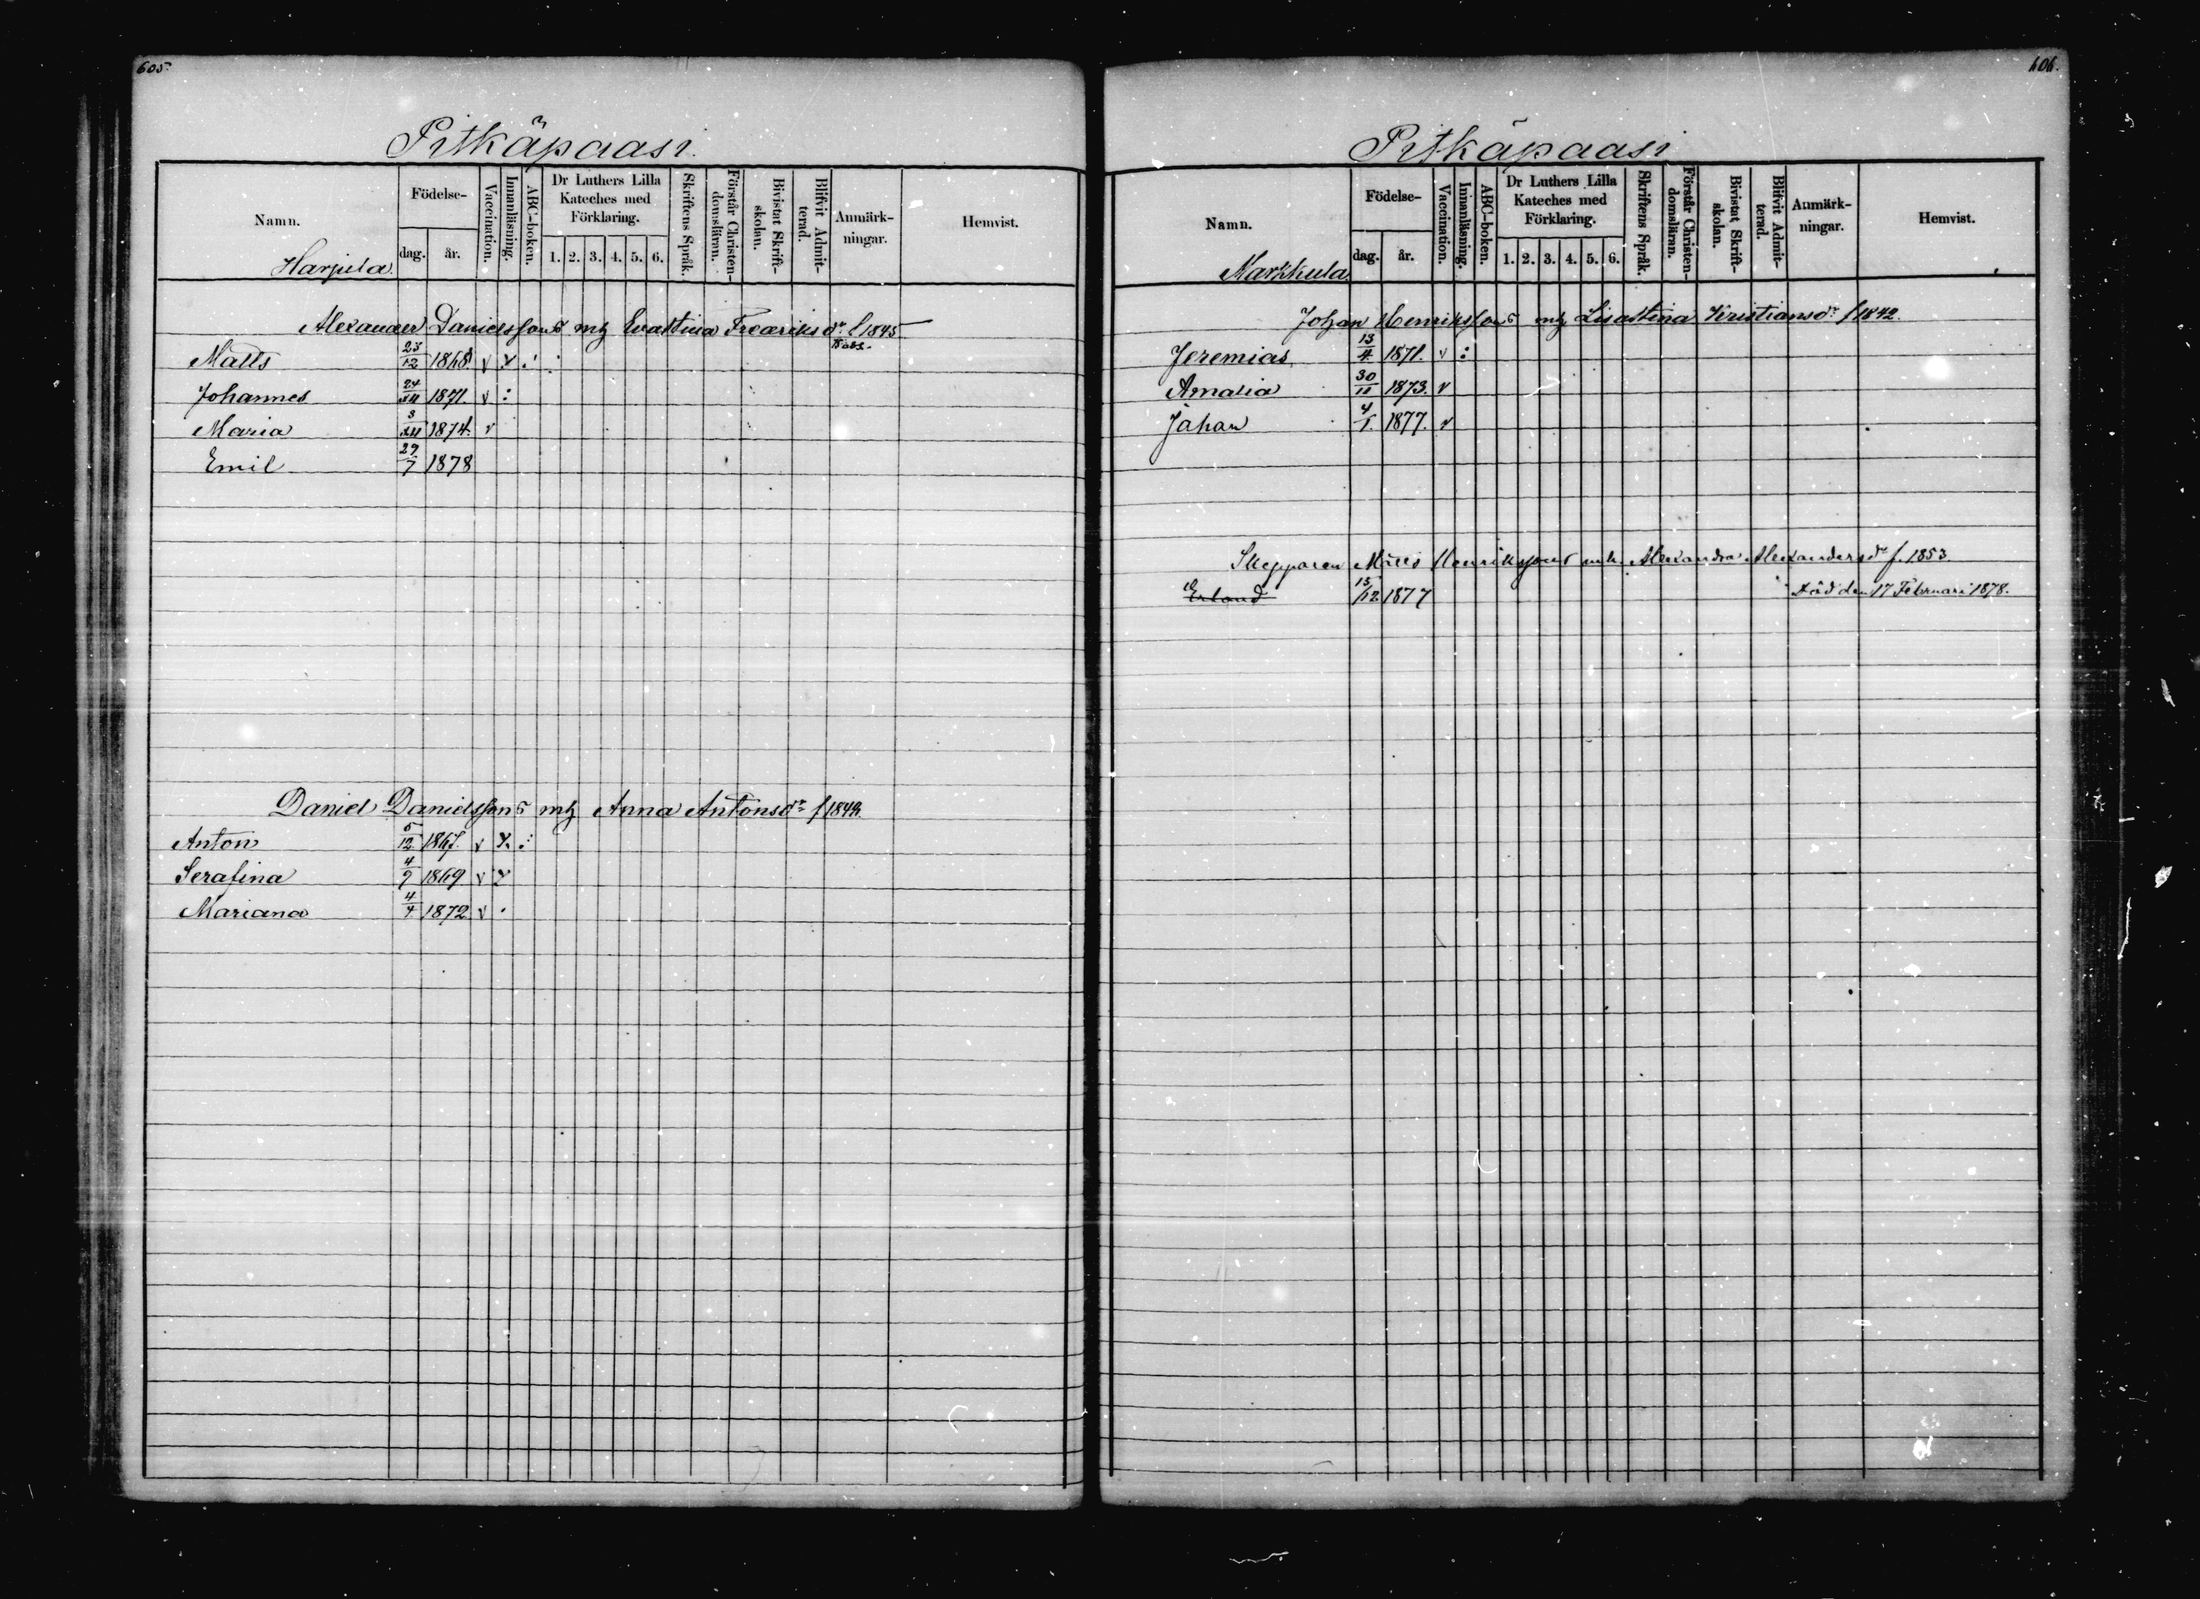 605.
Pitkäpaasi.
Namn.
Födelse-
dag. år.
Vaccination.
Innanläsning.
ABC-boken.
Dr Luthers Lilla Kateches med Förklaring.
1. 2. 3. 4. 5. 6.
Skriftens Språk.
Förstår Christen-domsläran.
Bivistat Skrift-skolan.
Blifvit Admit-terad.
Anmärk-ningar.
Hemvist.
Harjula
Alexander Danielssons mh Evastina Fredriksdr f 1845
Matts 23/12 1868 v x
Johannes 24/XII 1871. v :
Maria 3/XII 1874. v
Emil 29/7 1878
Daniel Danielssons mh Anna Antonsdr f 1842.
Anton 5/12 1867. v x
Serafina 4/9 1869 v x
Mariana 4/4 1872 v .
606.
Pitkäpaasi
Namn.
Födelse-
dag. år.
Vaccination.
Innanläsning.
ABC-boken.
Dr Luthers Lilla Kateches med Förklaring.
1. 2. 3. 4. 5. 6.
Skriftens Språk.
Förstår Christen-domsläran.
Bivistat Skrift-skolan.
Blifvit Admit-terad.
Anmärk-ningar.
Hemvist.
Markkula
Johan Henrikssons mh Lisastina Kristiansdr f 1842.
Jeremias 13/4 1871. v :
Amalia 30/11 1873. v
Johan 4/1. 1877. v
Skepparen Matts Henrikssons mh. Alexandra Alexandersdr f. 1853.
Erland 15/12 1877 Död den 17 Februari 1878.